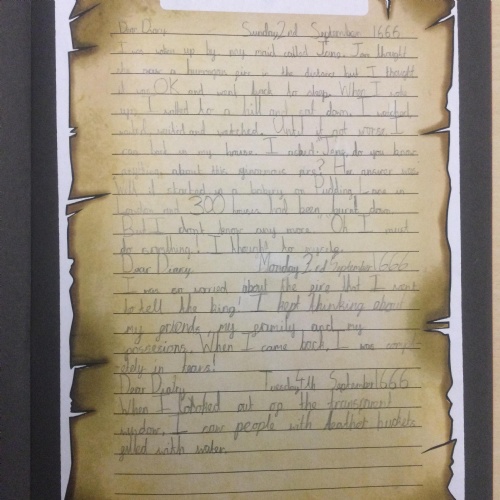 Dear Diary Sunday 2nd September 1666
I was woken up by my maid called Jane. Jane thought
she saw a humorous fire in the distance but I thought
it was OK and went back to sleep. When I woke
up I walked to a hill and sat down. I watched
waited waited and watched. Until it got worse. I
came back in my house. I asked Jane do you know
anything about this ginormous fire? The answer was
Well it started in a bakery on Pudding Lane in
London and 300 houses had been burn'd down
But I don't know any more. Oh I must
do anything! I thought to myself.
Dear Diary Monday 3rd September 1666
I was so worried about the fire that I went
to tell the king! I kept thinking about
my friends, my family and my
possessions. When I came back I was compl-
etely in tears!
Dear Diary Tuesday 4th September 1666
When I looked out of the transparent
window, I saw people with leather buckets
filled with water.